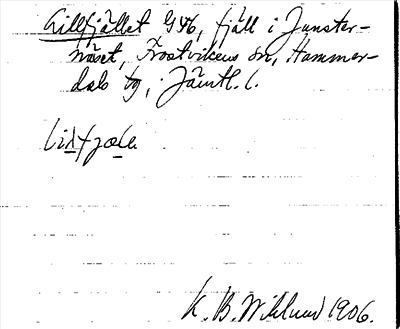 Lillfjället GSK, fjäll i Junster-
näset, Frostvikens sn, Hammer-
dals tg, Jämtl. l.
K. B. Wiklund 1906.